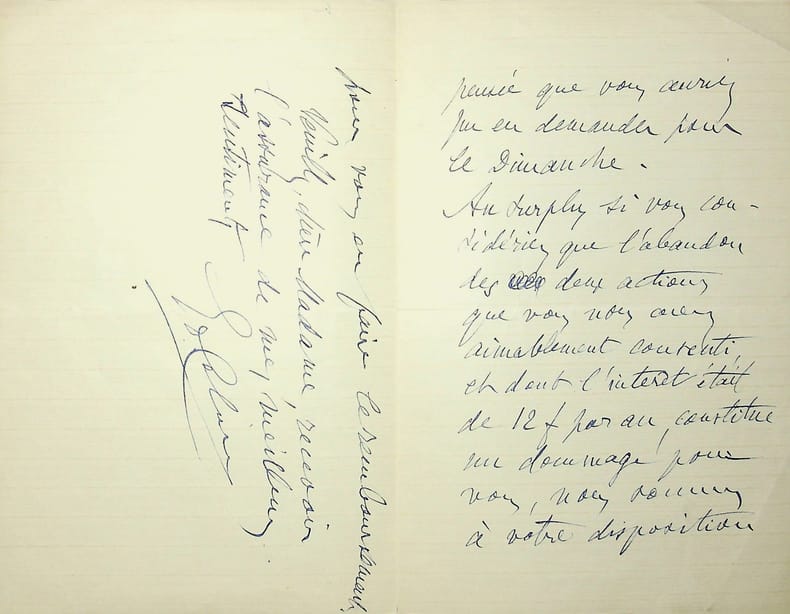 pensée que vous auriez
pu en demander pour
le Dimanche.
Au surplus si vous con-
sidériez que l'abandon
des deux actions
que vous nous avez
aimablement consenti,
et dont l'interet était
de 12 f par an, constitue
un dommage pour
vous, nous sommes
à votre disposition
pour vous en faire le remboursement.
Veuillez, chère Madame, recevoir
l'assurance de mes meilleurs
sentiments